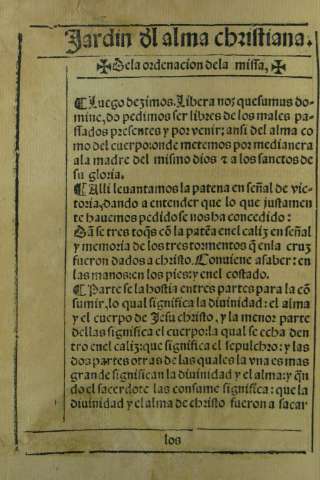 Jardin dl alma christiana.
✠ De la ordenacion dela missa, ✠
¶ Luego dezimos. Libera nos quesumus do-
mine, do pedimos ser libres de los males pa-
ssados presentes y por venir; ansi del alma co
mo del cuerpo: onde metemos por medianera
ala madre del mismo dios & a los sanctos de
su gloria.
¶ Alli leuantamos la patena en señal de vic-
toria, dando a entender que lo que justamen
te hauemos pedido se nos ha concedido:
Dāse tres toq̄s cō la patēa enel caliz en señal
y memoria de los tres tormentos q̄ enla cruz
fueron dados a christo. Conuiene asaber: en
las manos: en los pies: y enel costado.
¶ Parte se la hostia en tres partes para la cō
sumir, lo qual significa la diuinidad: el alma
y el cuerpo de Jesu christo, y la menor parte
dellas significa el cuerpo: la qual se echa den
tro enel caliz: que significa el sepulchro: y las
dos partes otras de las quales la vna es mas
grande significan la diuinidad y el alma: y q̄n
do el sacerdote las consume significa: que la
diuinidad y el alma de christo fueron a sacar
los